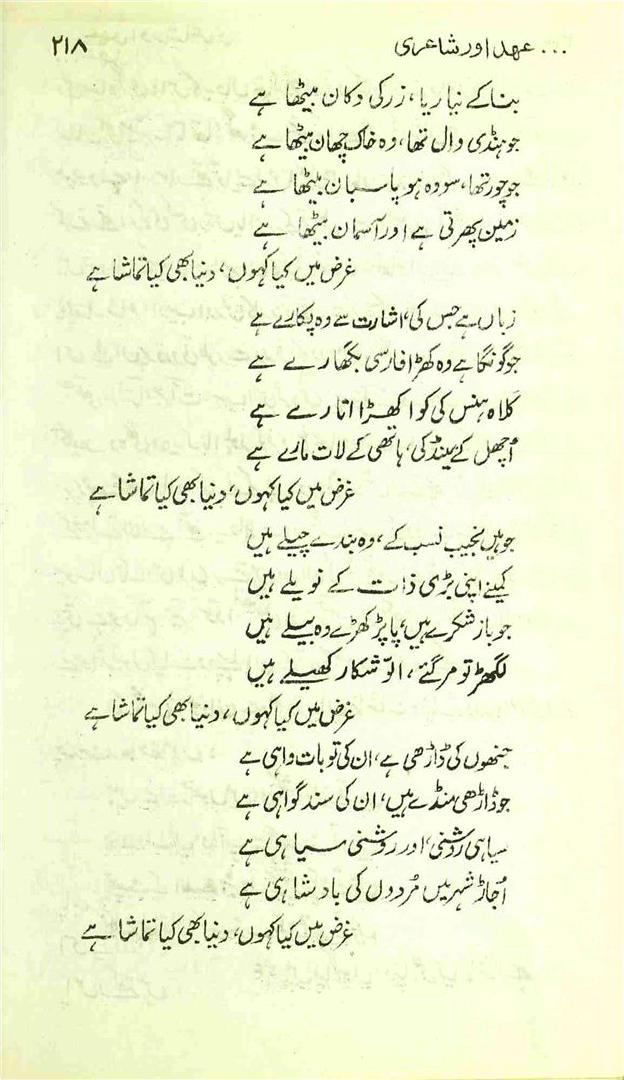 ... عہد اور شاعری ۲۱۸
بنا کے نیاریا، زر کی دکان بیٹھا ہے
جو ہنڈی وال تھا، وہ خاک چھان بیٹھا ہے
جو چور تھا، سو وہ ہو پاسبان بیٹھا ہے
زمین پھرتی ہے اور آسمان بیٹھا ہے
غرض میں کیا کہوں، دنیا بھی کیا تماشا ہے
زباں ہے جس کی، اشارت سے وہ پکارے ہے
جو گونگا ہے وہ کھڑا فارسی بگھارے ہے
کلاہ ہنس کی کوا کھڑا اتارے ہے
اُچھل کے مینڈکی، ہاتھی کے لات مارے ہے
غرض میں کیا کہوں، دنیا بھی کیا تماشا ہے
جو ہیں نجیب نسب کے، وہ بندے چیلے ہیں
کمینے اپنی بڑی ذات کے نویلے ہیں
جو باز شکرے ہیں، پاپڑ کھڑے وہ بیلے ہیں
لگھڑ تو مر گئے، الّو شکار کھیلے ہیں
غرض میں کیا کہوں، دنیا بھی کیا تماشا ہے
جنھوں کی ڈاڑھی ہے، ان کی تو بات واہی ہے
جو ڈاڑھی منڈے ہیں، ان کی سند گواہی ہے
سیاہی روشنی، اور روشنی سیاہی ہے
اُجاڑ شہر میں مُردوں کی بادشاہی ہے
غرض میں کیا کہوں، دنیا بھی کیا تماشا ہے